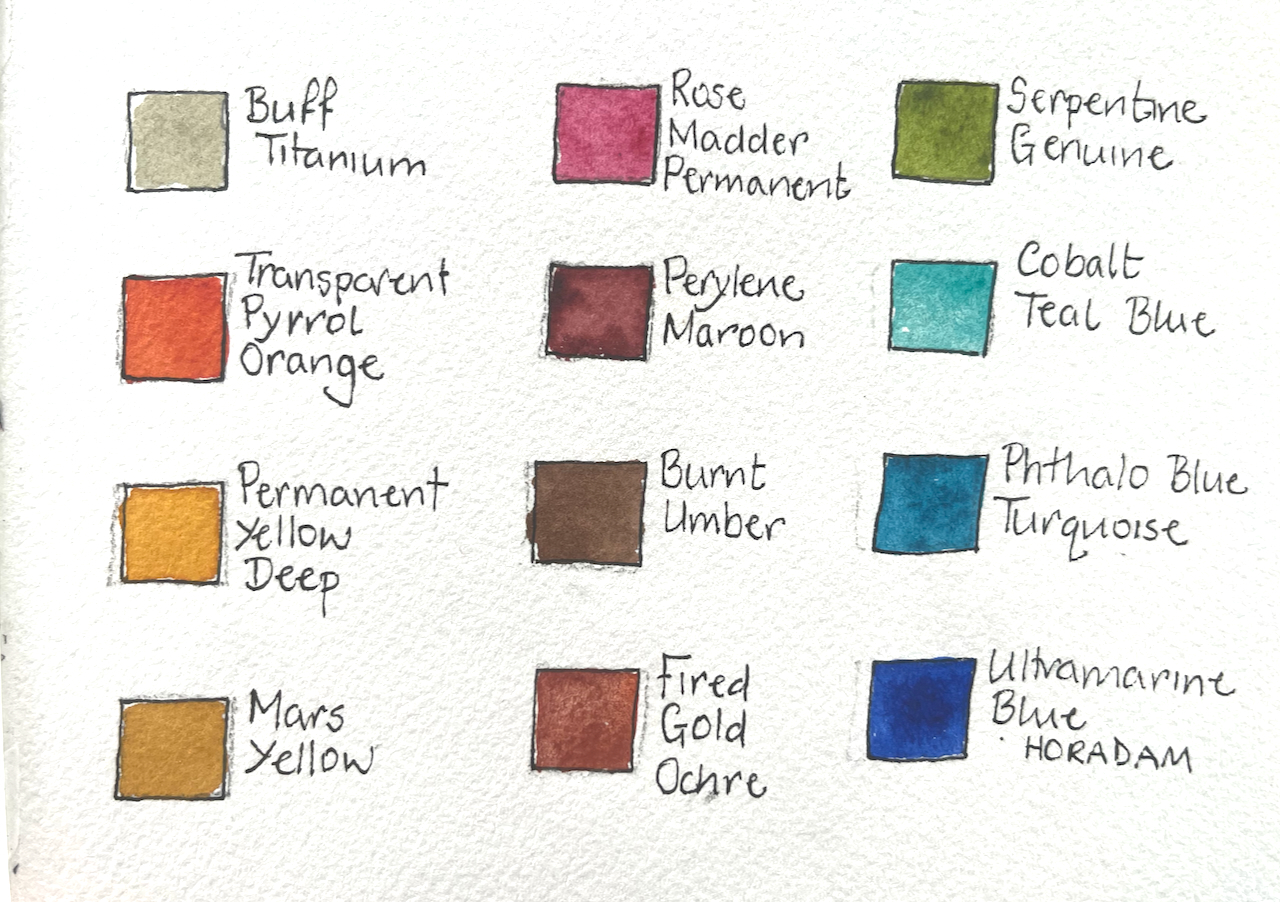 Buff
Titanium
Rose
Madder
Permanent
Serpentine
Genuine
Transparent
Pyrrol
Orange
Perylene
Maroon
Cobalt
Teal Blue
Permanent
Yellow
Deep
Burnt
Umber
Phthalo Blue
Turquoise
Mars
Yellow
Fired
Gold
Ochre
Ultramarine
Blue
HORADAM